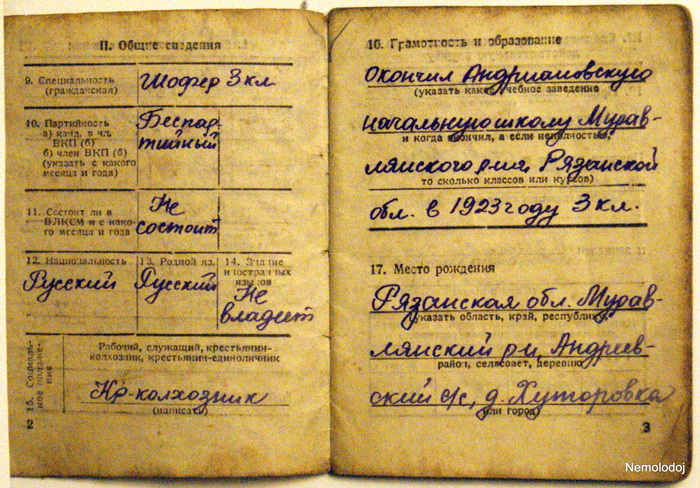 II. Общие сведения
9. Специальность
(гражданская)
Шофер 3 кл
10. Партийность
а) канд. в чл.
ВКП (б)
б) член ВКП (б)
(указать с какого
месяца и года)
Беспар-
тийный
11. Состоит ли в
ВЛКСМ и с како-
го месяца и года
Не
состоит
12. Национальность
Русский
13. Родной яз.
Русский
14. Знание
иностранных
языков
Не
владеет
15. Социаль-
ное положе-
ние
Рабочий, служащий, крестьянин-
колхозник, крестьянин-единоличник
Кр-колхозник
(написать)
2
16. Грамотность и образование
Окончил Андриановскую
(указать какое учебное заведение
начальную школу Мурав-
и когда окончил, а если неполностью,
лянского р-на Рязанской
то сколько классов или курсов)
обл. в 1923 году 3 кл.
17. Место рождения
Рязанская обл. Мурав-
(указать область, край, республику,
лянский р-н, Андреев-
район, сельсовет, деревню
ский с/с, д. Хуторовка
или город)
3
Nemolodoj